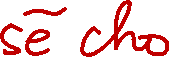 sẽ cho